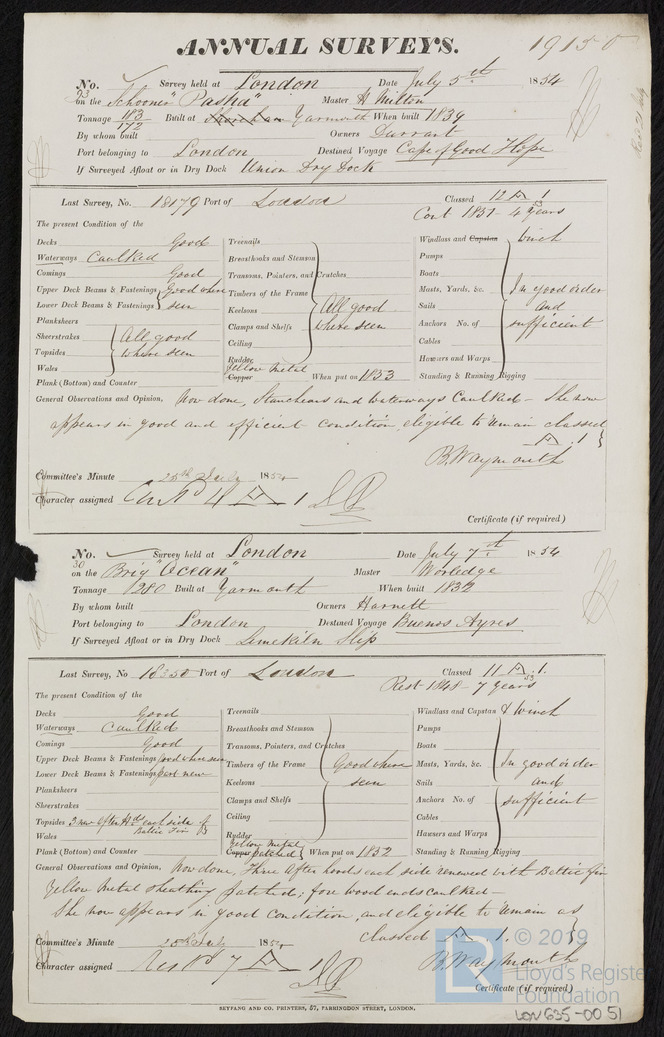 ANNUAL SURVEYS. 19150
No. 93 Survey held at London Date July 5th 1854
on the Schooner "Pasha" Master H Milton
Tonnage 183/172 Built at Yarmouth When built 1839
By whom built Owners Durrant
Port belonging to London Destined Voyage Cape of Good Hope
If Surveyed Afloat or in Dry Dock Union Dry Dock
Last Survey, No. 18179 Port of London Classed 12 A 1 53
Cont 1851 - 4 years
The present Condition of the
Decks Good
Waterways Caulked
Comings Good
Upper Deck Beams & Fastenings Good where
Lower Deck Beams & Fastenings seen
Planksheers
Sheerstrakes All good
Topsides where seen
Wales
Plank (Bottom) and Counter
Treenails
Breasthooks and Stemson
Transoms, Pointers, and Crutches
Timbers of the Frame
Keelsons All good
Clamps and Shelfs where seen
Ceiling
Rudder
Yellow Metal
Copper When put on 1853
Windlass and Capstan Winch
Pumps
Boats
Masts, Yards, &c. In good order
Sails and
Anchors No. of sufficient
Cables
Hawsers and Warps
Standing & Running Rigging
General Observations and Opinion, Now done, Stancheons and Waterways Caulked - She now
appears in good and efficient condition, eligible to remain classed
A 1
B. Waymouth
Committee's Minute 25th July 1854
Character assigned Cont'd 4 A 1
Certificate (if required)
No. 30 Survey held at London Date July 7th 1854
on the Brig "Ocean" Master Worledge
Tonnage 280 Built at Yarmouth When built 1832
By whom built Owners Harnett
Port belonging to London Destined Voyage Buenos Ayres
If Surveyed Afloat or in Dry Dock Limekiln Slip
Last Survey, No 18350 Port of London Classed 11 A 1. 53
Rest 1848 - 7 years
The present Condition of the
Decks Good
Waterways Caulked
Comings Good
Upper Deck Beams & Fastenings good where seen
Lower Deck Beams & Fastenings part new
Planksheers
Sheerstrakes
Topsides 3 new after Hds each side of
Wales Baltic Fir
Plank (Bottom) and Counter
Treenails
Breasthooks and Stemson
Transoms, Pointers, and Crutches
Timbers of the Frame Good where
Keelsons seen
Clamps and Shelfs
Ceiling
Rudder
Yellow Metal
Copper patched When put on 1852
Windlass and Capstan & Winch
Pumps
Boats
Masts, Yards, &c. In good order
Sails and
Anchors No. of sufficient
Cables
Hawsers and Warps
Standing & Running Rigging
General Observations and Opinion, Now done, Three after hoods each side renewed with Baltic Fir
Yellow Metal sheathing patched; fore wood ends caulked -
She now appears in good condition, and eligible to remain as
classed A 1.
B. Waymouth
Committee's Minute 25th July 1854
Character assigned Rest'd 7 A 1
Certificate (if required)
SEYFANG AND CO. PRINTERS, 57, FARRINGDON STREET, LONDON.
© 2019
Lloyd's Register
Foundation
LON635-0051